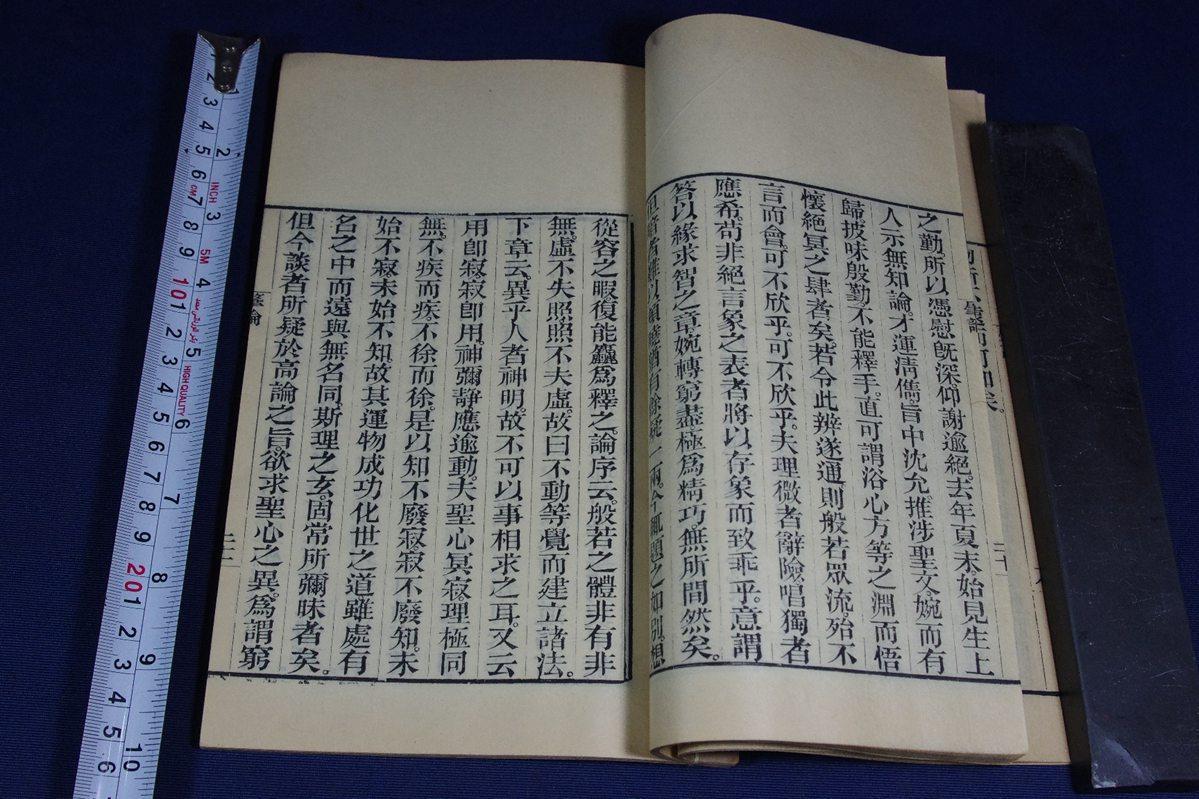 之勤所以憑慰旣深仰謝逾絕。去年夏末始見生上
人示無知論。才運淸儁。旨中沈允。推涉聖文。婉而有
歸。披味殷勤不能釋手。直可謂浴心方等之淵而悟
懷絕冥之肆者矣。若令此辨遂通則般若眾流殆不
言而會。可不欣乎。可不欣乎。夫理微者辭險。唱獨者
應希。苟非絕言象之表者將以存象而致乖乎。意謂
答以緣求智之章婉轉窮盡極爲精巧。無所間然矣。
者難以頓有餘一兩。今輒題之如別。想
從容之暇復能麤爲釋之。論序云。般若之體非有非
無。虛不失照。照不失虛。故曰不動等覺而建立諸法。
下章云。異乎人者神明。故不可以事相求之耳。又云
用卽寂。寂卽用。神彌靜應逾動。夫聖心冥寂理極同
無。不疾而疾不徐而徐。是以知不廢寂。寂不廢知。未
始不寂未始不知。故其運物成功化世之道雖處有
名之中而遠與無名同。斯理之玄。固常所彌昧者矣。
但今談者所疑於高論之旨。欲求聖心之異。爲謂窮
INCH
CM
5M
HIGH QUALITY